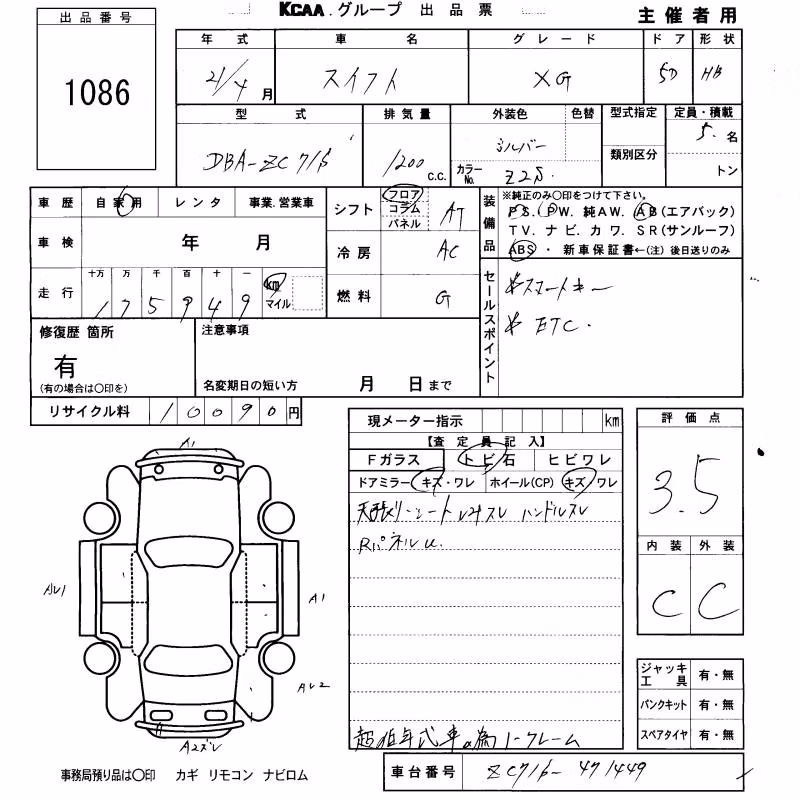 KCAA.グループ 出品票
主催者用
出品番号
1086
年式 車名 グレード ドア 形状
21/4月 スイフト XG 5D HB
型式 排気量 外装色 色替 型式指定 定員・積載
DBA-ZC71S 1200 c.c. シルバー 5.名
カラーNo. Z2S. 類別区分 トン
車歴 自家用 レンタ 事業.営業車
シフト フロア コラム パネル AT
装備品 ※純正のみ〇印をつけて下さい。
PS. PW. 純AW. AB(エアバック)
TV. ナビ. カワ. SR(サンルーフ)
ABS・新車保証書←(注)後日送りのみ
車検 年 月
冷房 AC
走行 十万 万 千 百 十 一 km マイル
175949
燃料 G
セールスポイント
*スマートキー
*ETC.
修復歴 箇所
有
(有の場合は〇印を)
注意事項
名変期日の短い方 月 日まで
リサイクル料 10090円
現メーター指示 km
【査定員記入】
Fガラス トビ石 ヒビワレ
ドアミラー キズ・ワレ ホイール(CP) キズ/ワレ
天張り・シート スレ ハンドルスレ
RパネルU.
超低年式車の為ノークレーム
評価点
3.5
内装 外装
C C
A1
A1
A2
A2ズレ
ジャッキ工具 有・無
パンクキット 有・無
スペアタイヤ 有・無
事務局預り品は〇印 カギ リモコン ナビロム
車台番号 ZC71S-471449